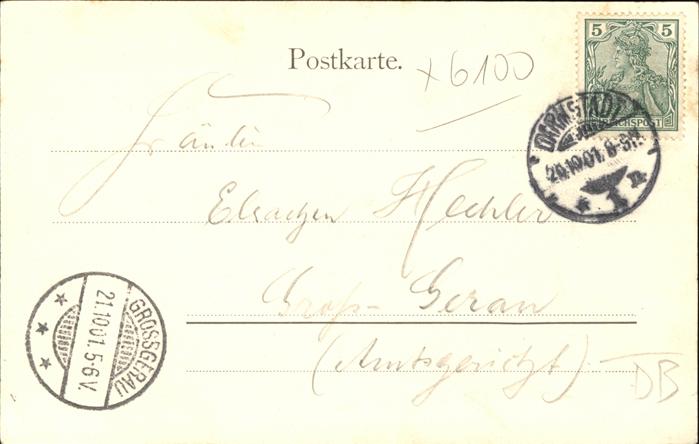 5 5
REICHSPOST
Postkarte.
+6100
DARMSTADT
20.10.01. 8-9N.
* 1 n
Fräulein
Hechler
Groß-Gerau
(Amtsgericht)
DB
GROSSGERAU
21.10.01. 5-6V.
* * *